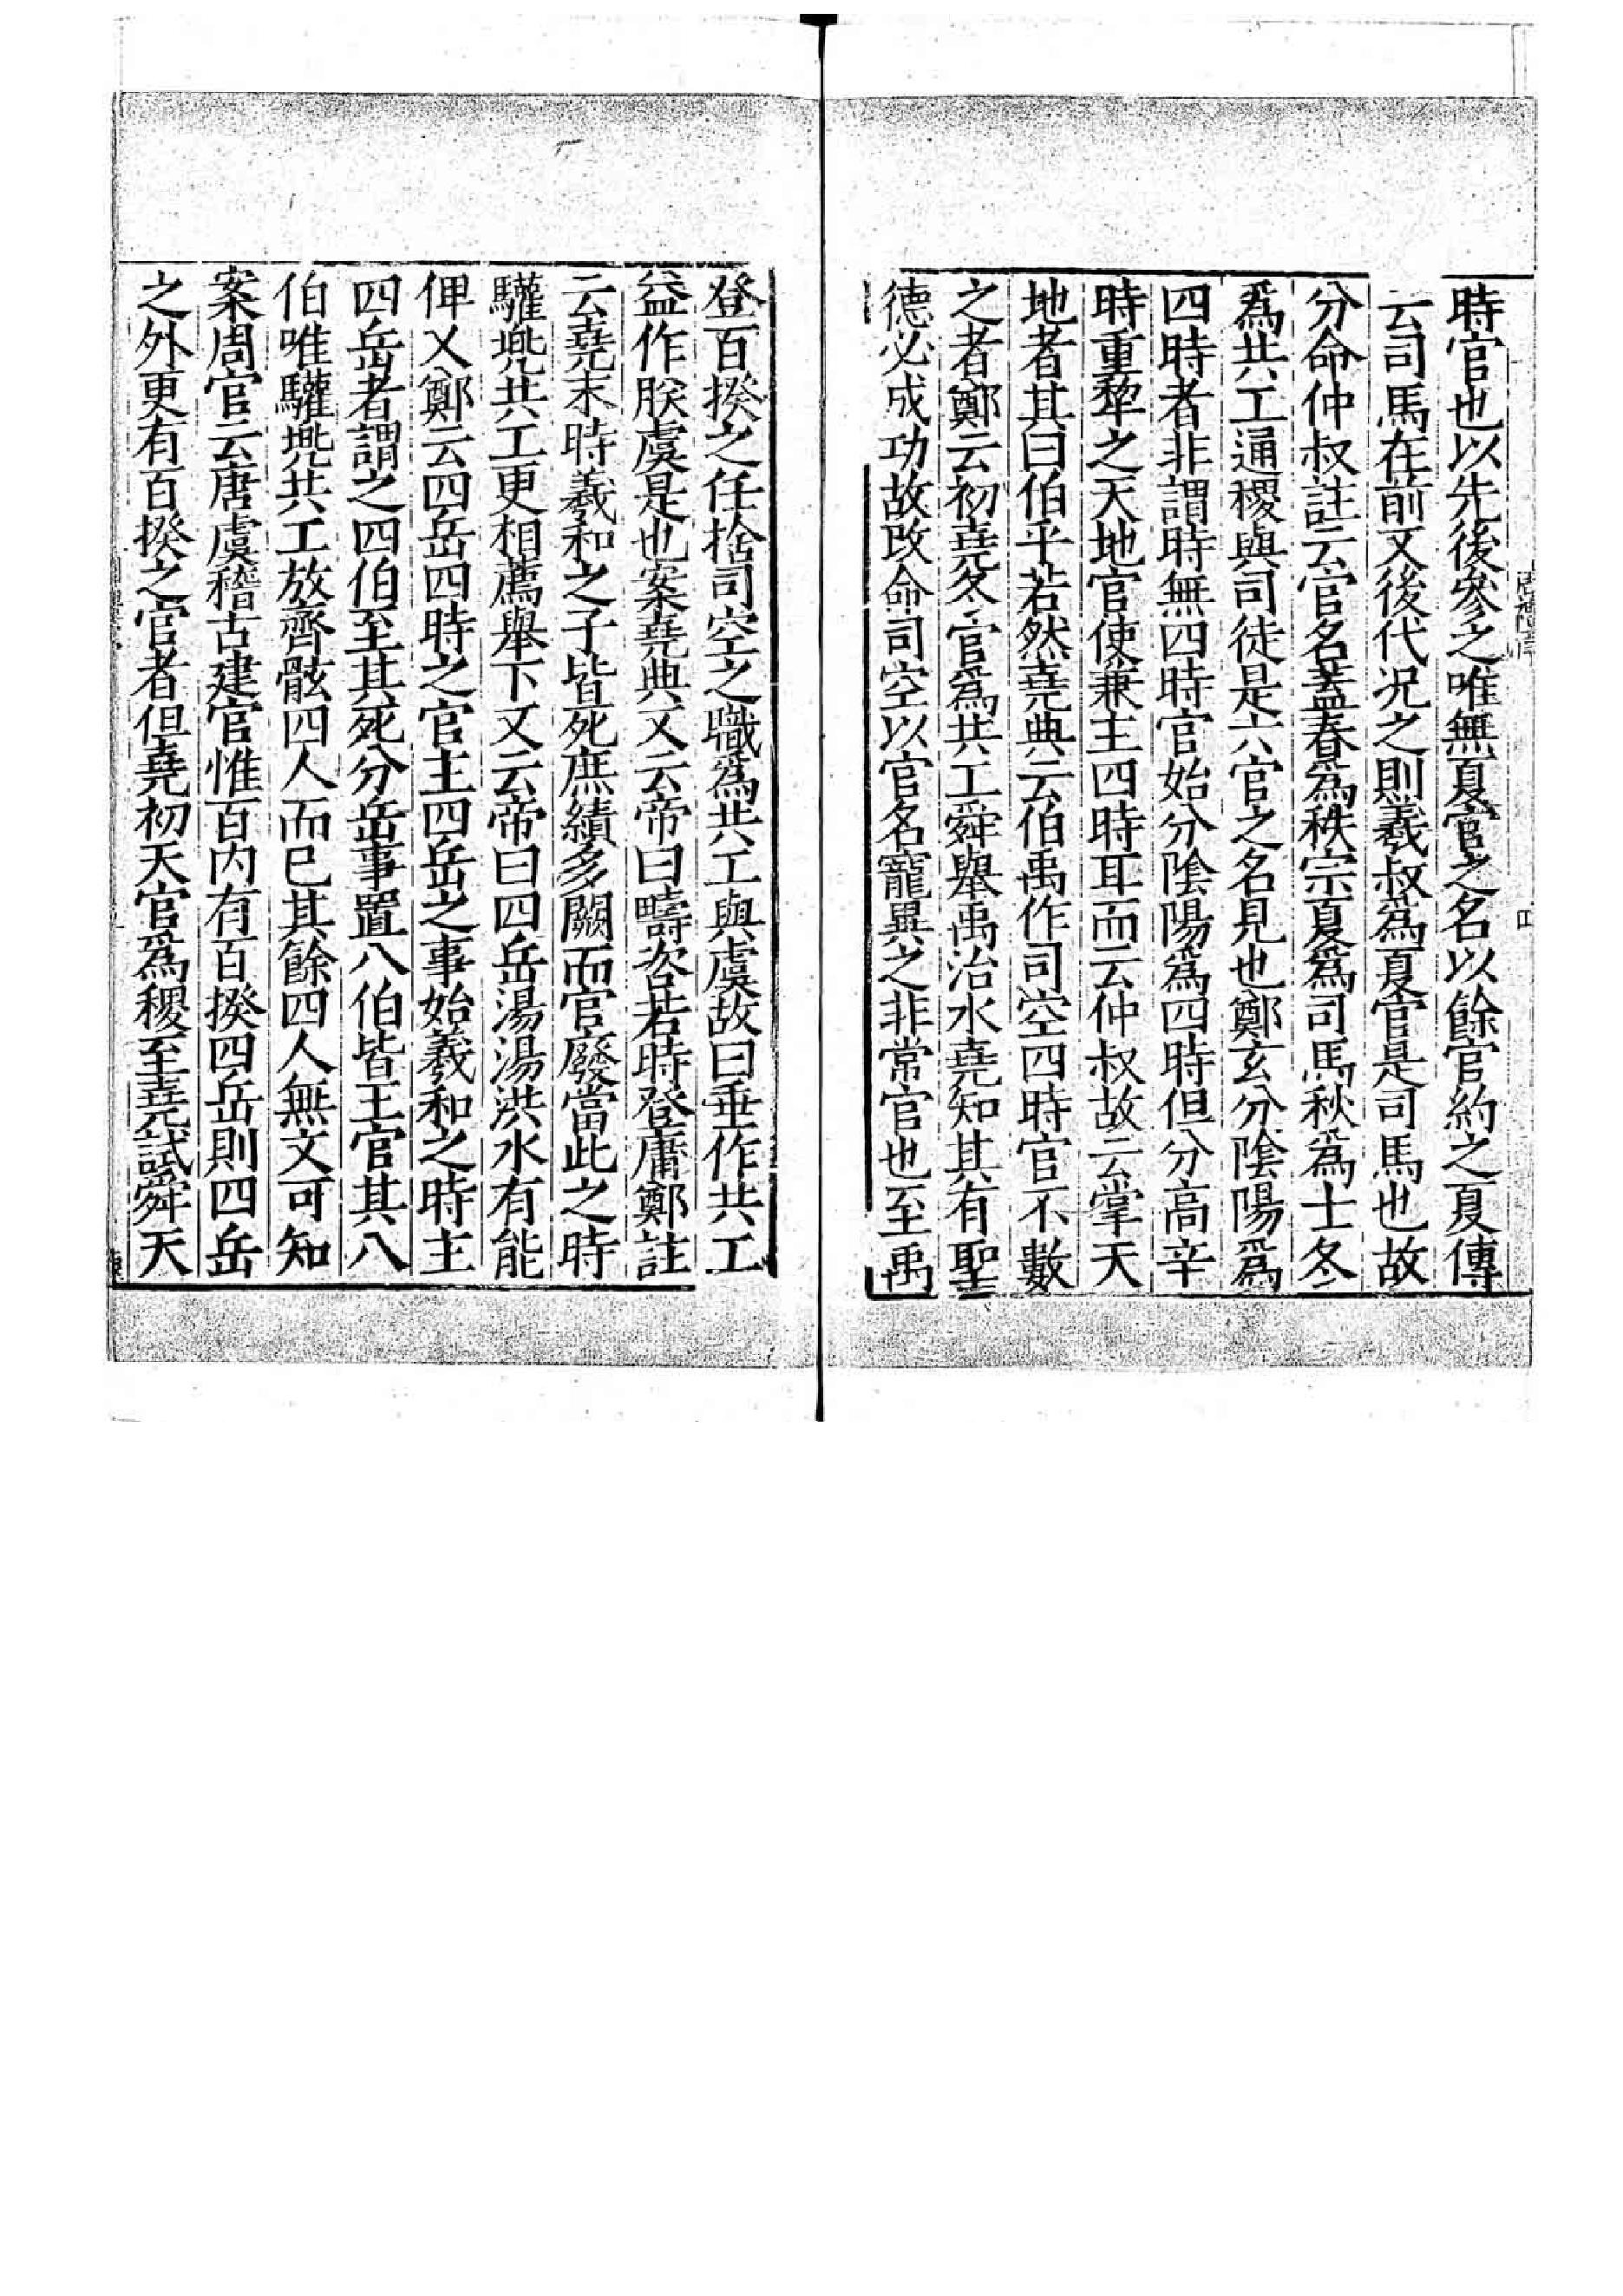 時官也以先後參之唯無夏官之名以餘官約之夏傳
云司馬在前又後代况之則羲叔爲夏官是司馬也故
分命仲叔註云官名蓋春爲秩宗夏爲司馬秋爲士冬
爲共工通稷與司徒是六官之名見也鄭玄分陰陽爲
四時者非謂時無四時官始分陰陽爲四時但分高辛
時重犂之天地官使兼主四時耳而云仲叔故云掌天
地者其曰伯乎若然堯典云伯禹作司空四時官不數
之者鄭云初堯冬官爲共工舜舉禹治水堯知其有聖
德必成功故改命司空以官名寵異之非常官也至禹
登百揆之任捨司空之職爲共工與虞故曰垂作共工
益作朕虞是也案堯典又云帝曰疇咨若時登庸鄭註
云堯末時羲和之子皆死庶績多闕而官廢當此之時
驩兠共工更相薦舉下又云帝曰四岳湯湯洪水有能
俾乂鄭云四岳四時之官主四岳之事始羲和之時主
四岳者謂之四伯至其死分岳事置八伯皆王官其八
伯唯驩兠共工放齊骸四人而已其餘四人無文可知
案周官云唐虞稽古建官惟百内有百揆四岳則四岳
之外更有百揆之官者但堯初天官爲稷至堯試舜天